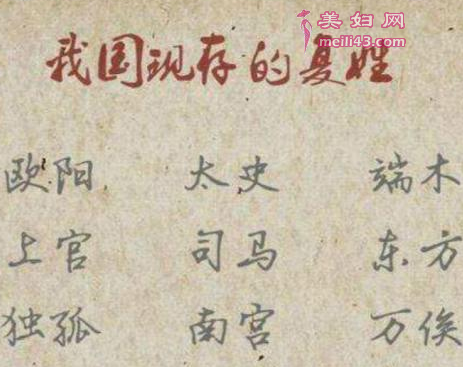 美妇网
meili43.com
我国现存的复姓
欧阳 太史 端木
上官 司马 东方
独孤 南宫 万俟